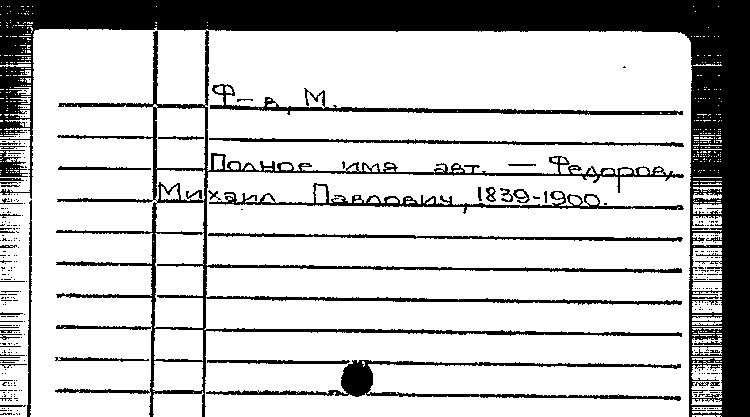 Ф-в, М.
Полное имя авт. — Федоров,
Михаил Павлович, 1839-1900.